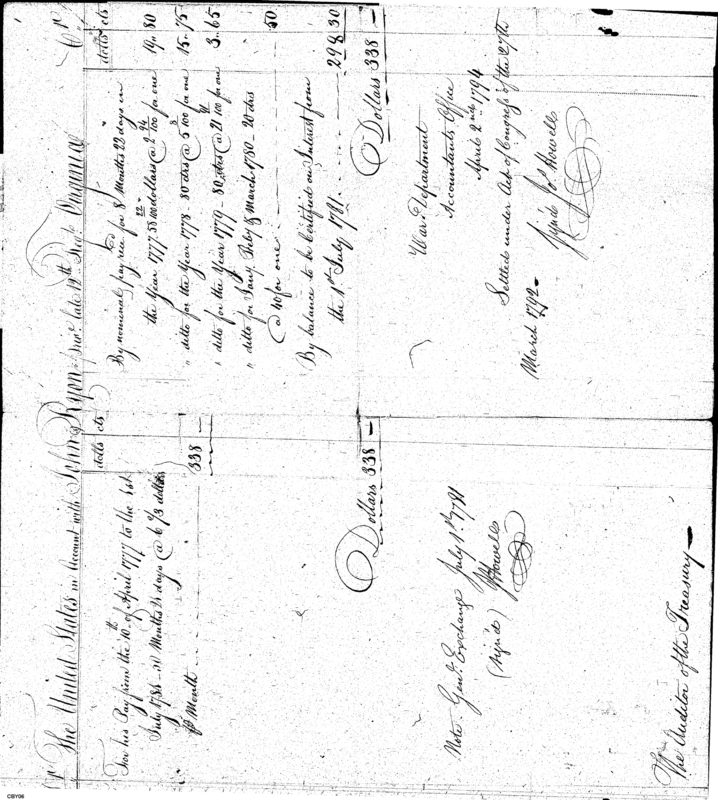 Dr The United States in Account with John Ryon Invo late 14th Regt Virginia Cr
dolls cts
For his Pay from the 10th of April 1777 to the 1st
July 1781 Months days @ 6 2/3 dollars
⅌ Month
338 —
Dollars 338 —
Note. Genl. Exchange July 1st 1781
(signed) J Howell
The Auditor of the Treasury —
dolls cts
By nominal pay recd for 8 Months 23 days in
the Year 1777. 55 dollars @ 2 100 for one 19. 80
" ditto for the Year 1778 — 80 dtrs @ 5 100 for one 15. 75
" ditto for the Year 1779 — 80 dtrs @ 21 100 for one 3. 65
" ditto for Jany. Feby & March 1780 — 20 dtrs
@ 40 for one 50
By balance to be Certified on Interest from
the 1st July 1781 298 30
Dollars 338 —
War Department
Accountants Office
April 2nd 1794
Settled under Act of Congress of the 27th
March 1792 —
Sign'd Jos. Howell
CBY06